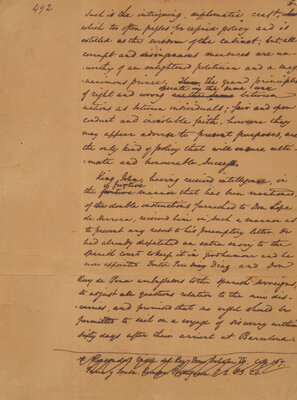 492
Such is the intriguing, diplomatic craft,
which too often passes for refined policy and is
extolled as the wisdom of the cabinet; but all
corrupt and disingenuous measures are un-
worthy of an enlightened politician and a mag-
nanimous prince. The grand principles
of right and wrong operate in the same way between
nations as between individuals; fair and open
conduct and inviolable faith, however they
may appear adverse to present purposes, are
the only kind of policy that will ensure ulti-
mate and honorable success.
King John, having received intelligence, in
the furtive manner that has been mentioned
of the double instructions furnished to Don Lope
de Herrera, received him in such a manner as
to prevent any resort to his peremptory letter. He
had already dispatched an extra envoy to the
Spanish court to keep it in good humour and he
now appointed Doctor Pero Diaz and Don
Ruy de Pena ambassadors to the Spanish sovereigns,
to adjust all questions relative to the new dis-
coveries, and promised that no vessel should be
permitted to sail on a voyage of discovery within
sixty days after their arrival at Barcelona.